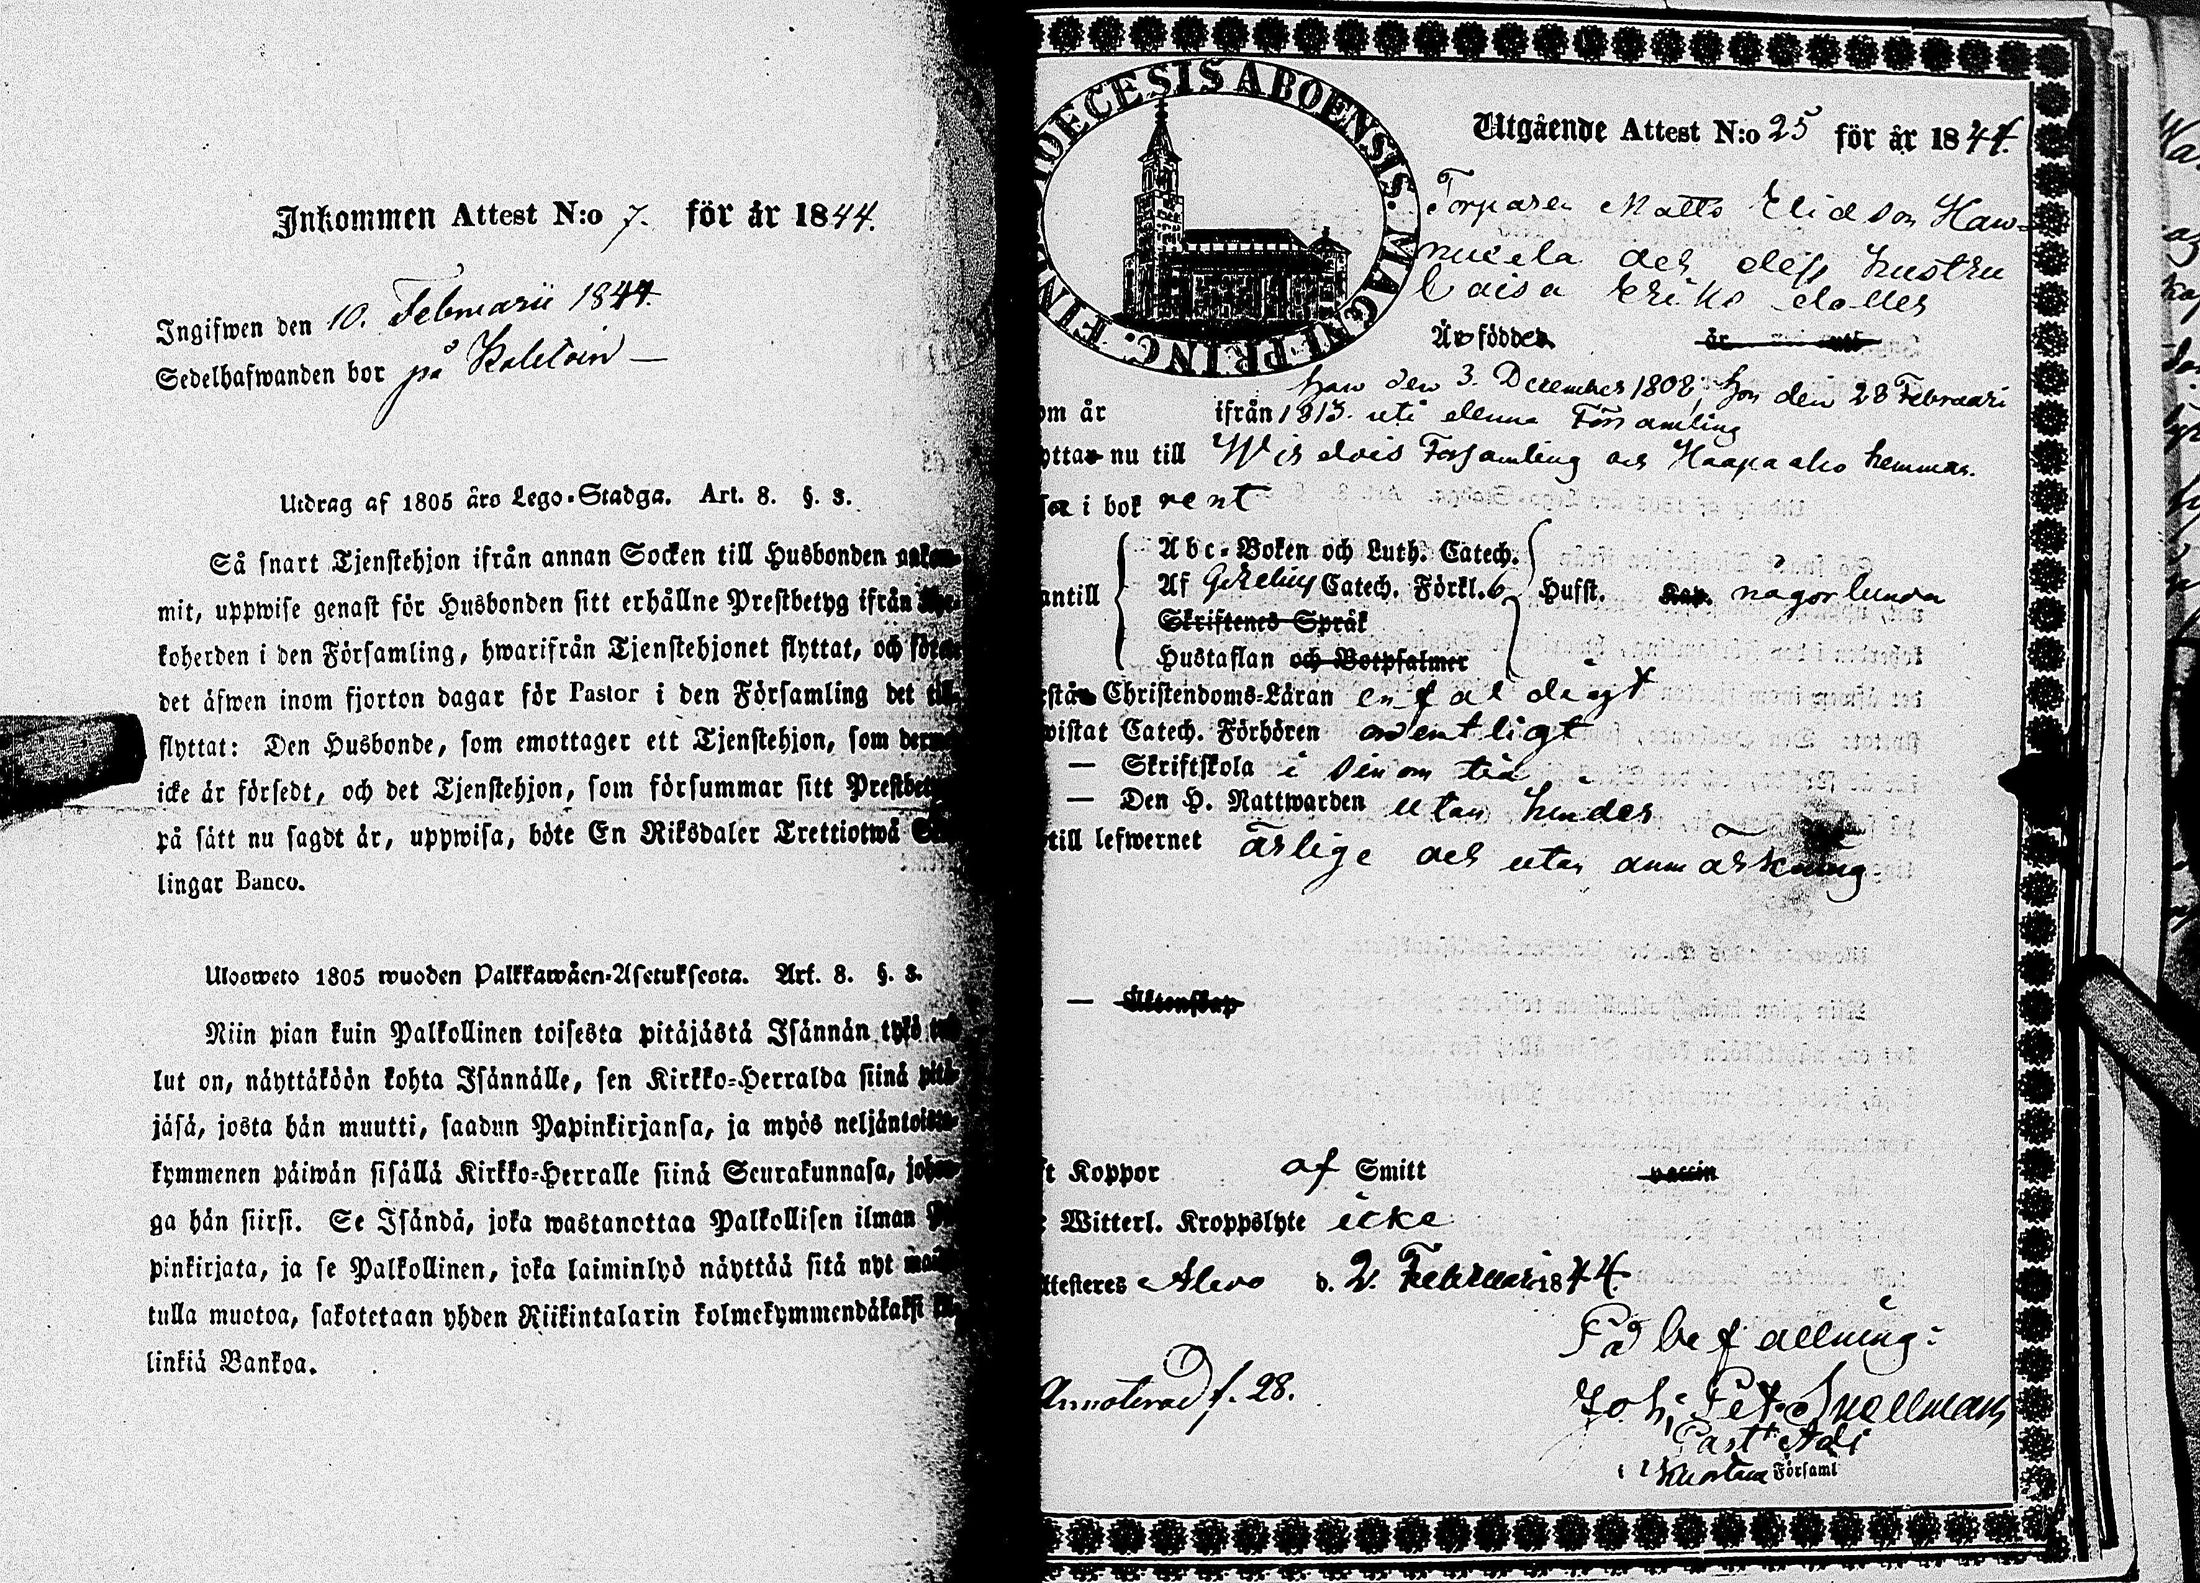 Inkommen Attest N:o 7. för år 1844.
Ingifwen den 10. Februarii 1844.
Sedelhafwanden bor på
Utdrag af 1805 års Lego-Stadga. Art. 8. §. 3.
Så snart Tjenstehjon ifrån annan Socken till Husbonden ankom-
mit, uppwise genast för Husbonden sitt erhållne Prestbetyg ifrån
koherden i den Församling, hwarifrån Tjenstehjonet flyttat, och
det äfwen inom fjorton dagar för Pastor i den Församling det
flyttat: Den Husbonde, som emottager ett Tjenstehjon, som
icke är försedt, och det Tjenstehjon, som försummar sitt
på sätt nu sagdt är, uppwisa, böte En Riksdaler Trettiotwå
lingar Banco.
Ulosweto 1805 wuoden Palkkawäen-Asetuksesta. Art. 8. §. 3.
Niin pian kuin Palkollinen toisesta pitäjästä Isännän tykö
lut on, näyttäköön kohta Isännälle, sen Kirkko-Herralda siinä pitä-
jäsä, josta hän muutti, saadun Papinkirjansa, ja myös neljäntoista-
kymmenen päiwän sisällä Kirkko-Herralle siinä Seurakunnasa, johon-
ga hän siirsi. Se Isändä, joka wastanottaa Palkollisen ilman
pinkirjata, ja se Palkollinen, joka laiminlyö näyttää sitä nyt
tulla muotoa, sakotetaan yhden Riikintalarin kolmekymmendäkaksi
linkiä Bankoa.
DIOECESIS ABOENSIS. MAGNI PRINC. FINL
Utgående Attest N:o 25 för år 1844.
Torparen Matts Elias son Haw-
nuela och dess hustru
Caisa Eriks dotter
Är födde år
han den 3. December 1808, hon den 28 Februari
om år ifrån 1813. uti denna Församling
yttar nu till Församling och Haapaaho hemman.
i bok rent
Abc-Boken och Luth. Catech.
antill Af Catech. Förkl. 6 Hufst. någorlunda
Skriftenes Språk
Hustaflan och Botpsalmer
rstå Christendoms-Läran enfaldigt
wistat Catech. Förhören ordentligt
— Skriftskola i sinom tid
— Den H. Nattwarden utan hinder
till lefwernet ärlige och utan anmärkning
— Äktenskap
t Koppor af Smitt vaccin
Witterl. Kroppslyte icke
ttesteres Alavo d. 2. Februari 1844.
På befallning:
Annoterad f. 28.
Joh: Pet. Snellman
Past: Adj
i Kuortane Församl